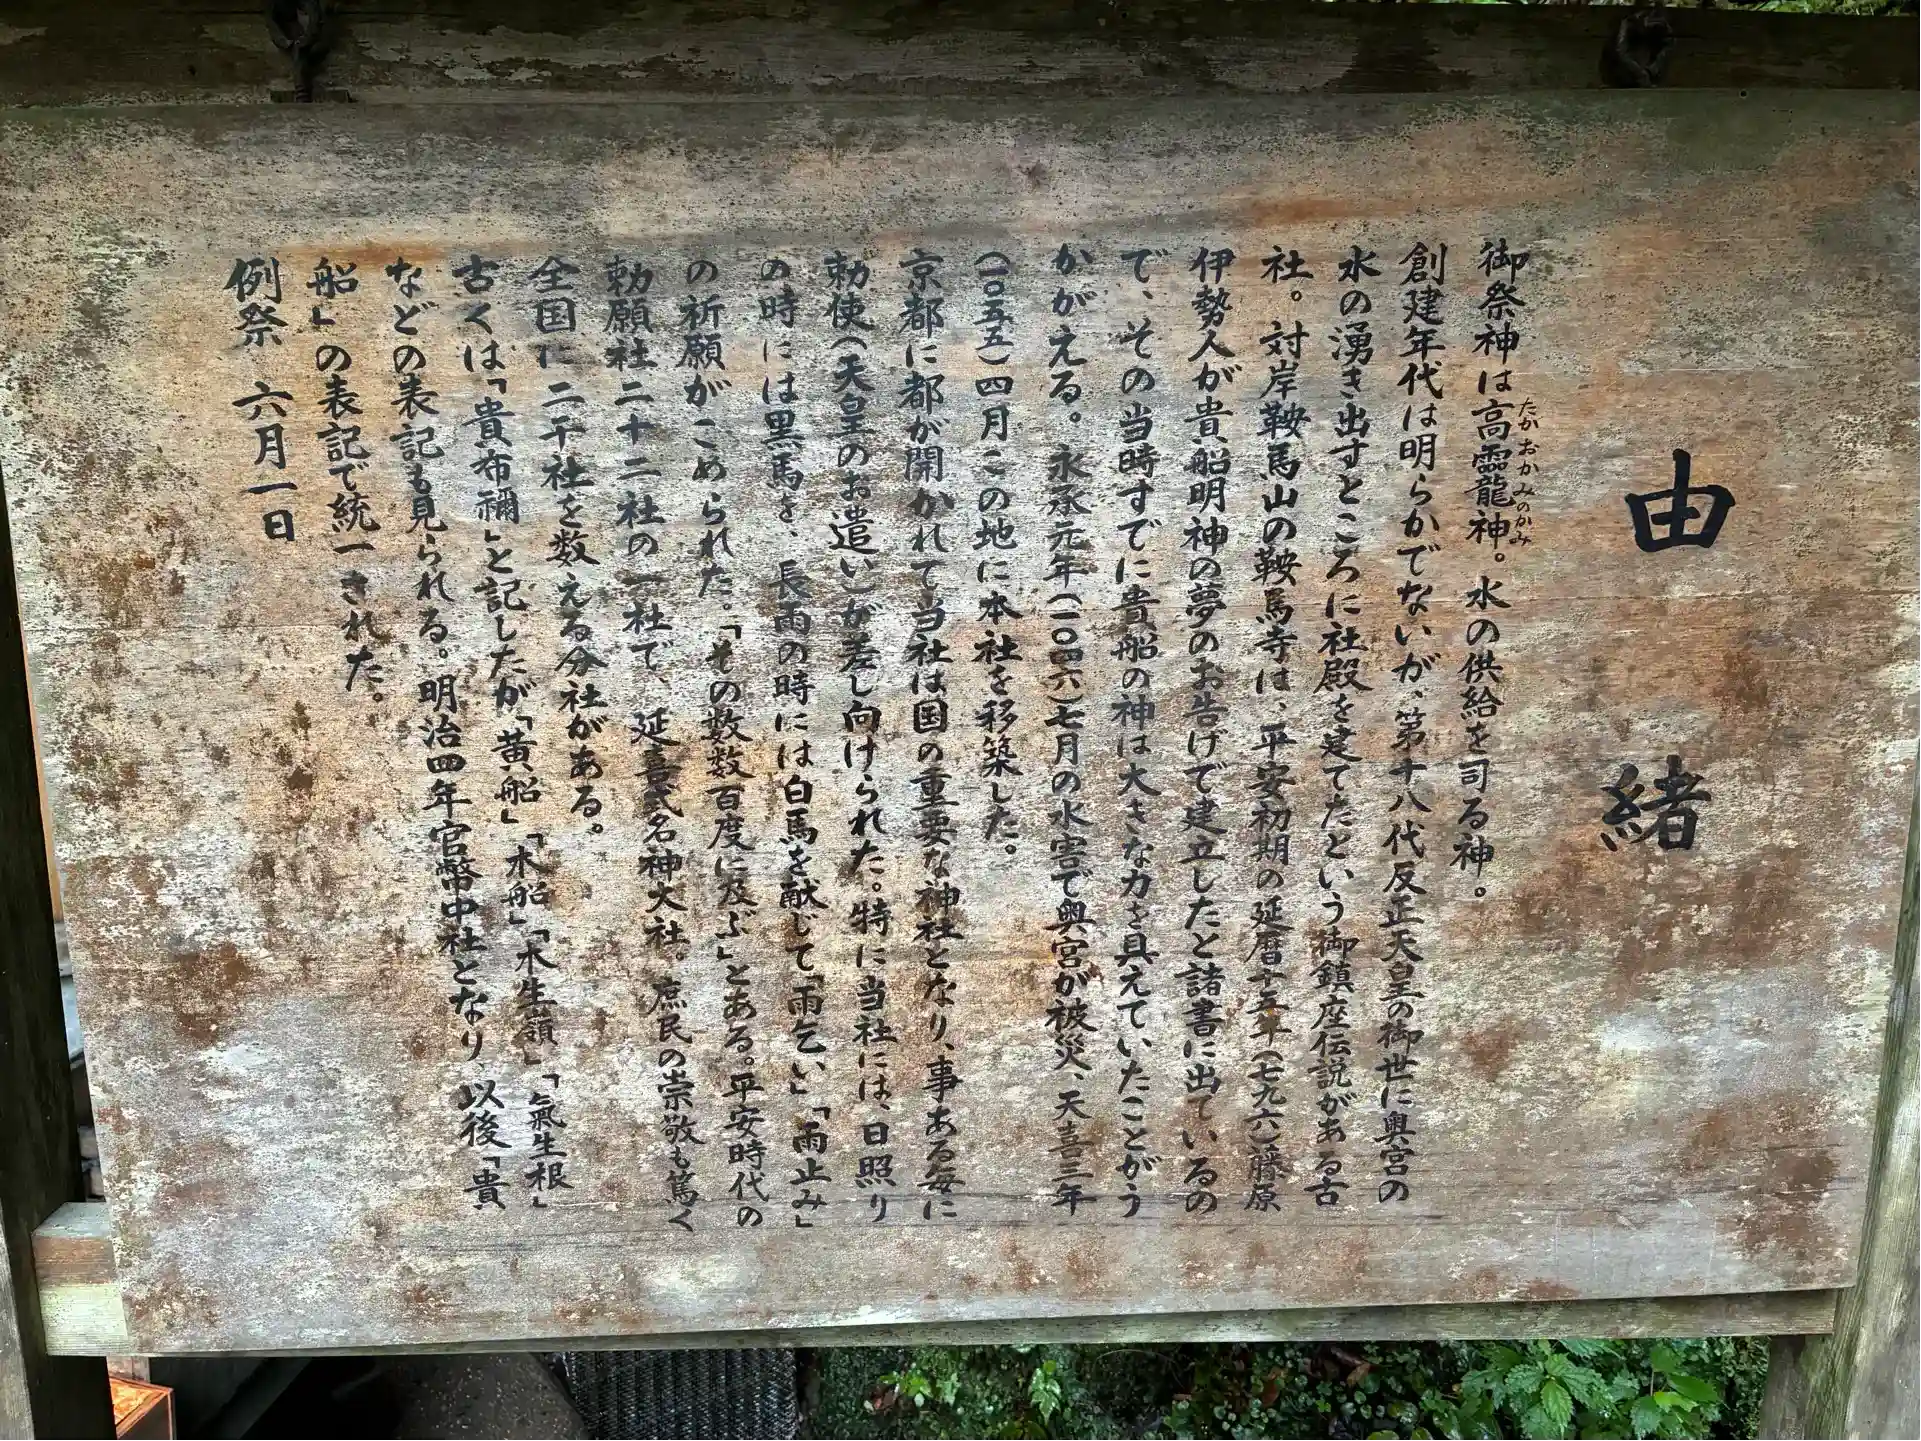 由緒
御祭神は高龗神。水の供給を司る神。
たかおかみのかみ
創建年代は明らかでないが、第十八代反正天皇の御世に奥宮の
水の湧き出すところに社殿を建てたという御鎮座伝説がある古
社。対岸鞍馬山の鞍馬寺は、平安初期の延暦十五年(七九六)藤原
伊勢人が貴船明神の夢のお告げで建立したと諸書に出ているの
で、その当時すでに貴船の神は大きな力を具えていたことがう
かがえる。永承元年(一〇四六)七月の水害で奥宮が被災、天喜三年
(一〇五五)四月この地に本社を移築した。
京都に都が開かれて当社は国の重要な神社となり、事ある毎に
勅使(天皇のお遣い)が差し向けられた。特に当社には、日照り
の時には黒馬を、長雨の時には白馬を献じて「雨乞い」「雨止み」
の祈願がこめられた。「その数数百度に及ぶ」とある。平安時代の
勅願社二十二社の一社で、延喜式名神大社。庶民の崇敬も篤く
全国に二千社を数える分社がある。
古くは「貴布禰」と記したが、「黄船」「木船」「木生嶺」「氣生根」
などの表記も見られる。明治四年官幣中社となり、以後「貴
船」の表記で統一された。
例祭 六月一日